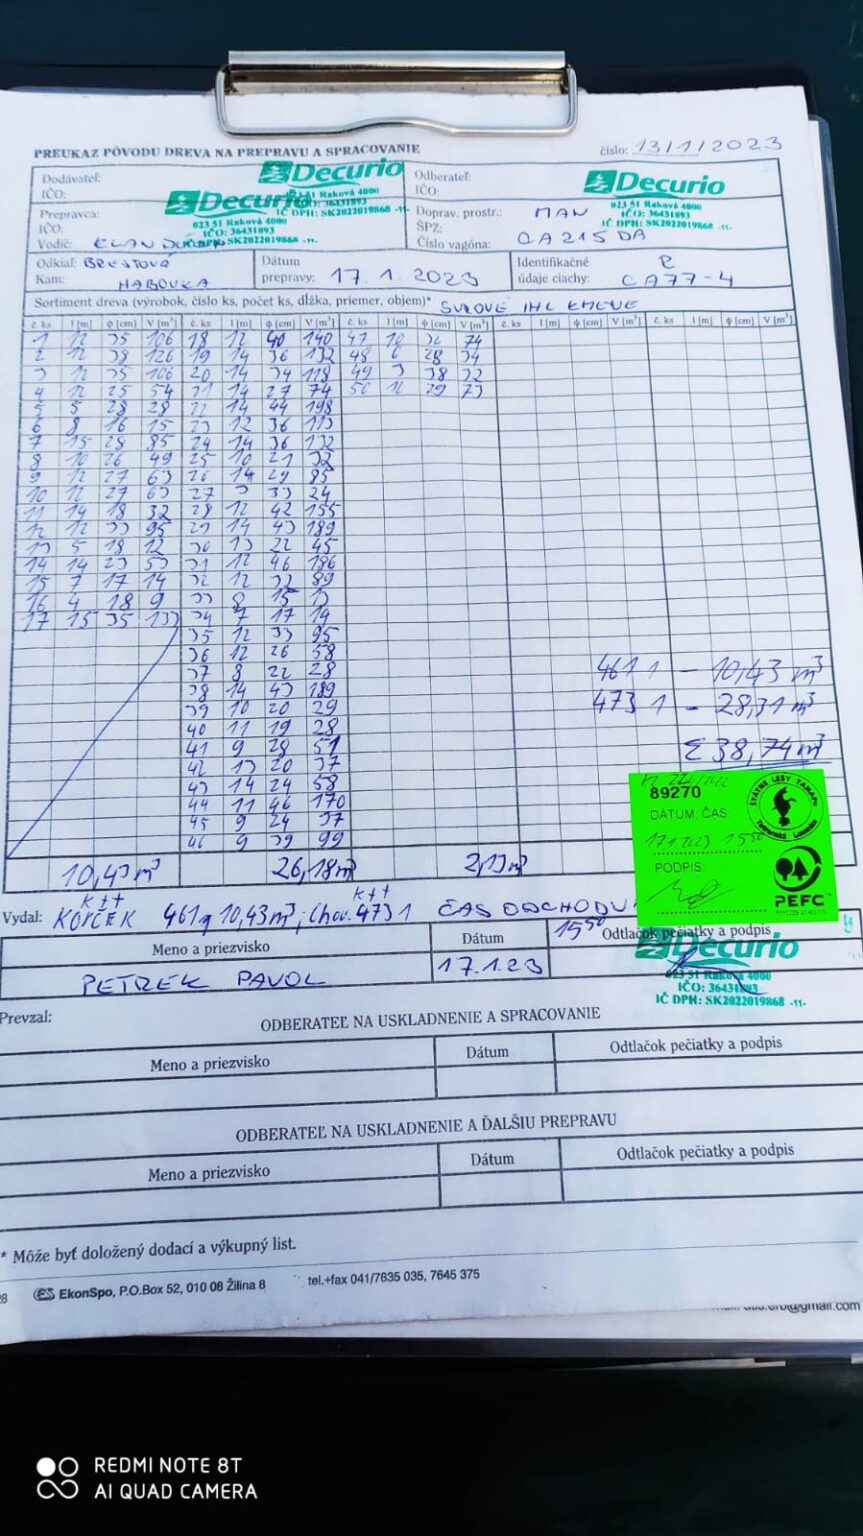 PREUKAZ PÔVODU DREVA NA PREPRAVU A SPRACOVANIE
číslo: 13/1/2023
Dodávateľ:
IČO:
Decurio
023 51 Raková 4000
Odberateľ:
IČO:
Decurio
023 51 Raková 4000
IČO: 36431893
IČ DPH: SK2022019868 -11-
Prepravca:
IČO:
Vodič:
Decurio
023 51 Raková 4000
IČO: 36431893
IČ DPH: SK2022019868 -11-
Doprav. prostr.: MAN
ŠPZ: CA215DA
Číslo vagóna:
Odkiaľ: BRESTOVÁ
Kam: HABOVKA
Dátum
prepravy: 17. 1. 2023
Identifikačné
údaje ciachy: R CA77-4
Sortiment dreva (výrobok, číslo ks, počet ks, dĺžka, priemer, objem)* SUROVÉ IHL KMENE
č. ks l [m] ϕ [cm] V [m³] č. ks l [m] ϕ [cm] V [m³] č. ks l [m] ϕ [cm] V [m³] č. ks l [m] ϕ [cm] V [m³] č. ks l [m] ϕ [cm] V [m³]
1 12 35 106 18 12 40 140 47 10 32 74
2 12 38 126 19 14 36 132 48 6 28 34
3 12 35 106 20 14 34 118 49 3 38 32
4 12 25 54 21 14 27 74 50 12 29 73
5 5 28 28 22 14 44 198
6 8 16 15 23 12 36 113
7 15 28 85 24 14 36 132
8 10 26 49 25 10 21 32
9 12 27 63 26 14 29 85
10 12 27 63 27 3 33 24
11 14 18 32 28 12 42 155
12 12 33 95 29 14 43 189
13 5 18 12 30 13 22 45
14 14 23 53 31 12 46 186
15 7 17 14 32 12 32 89
16 4 18 9 33 8 15 13
17 15 35 133 34 7 17 14
35 12 33 95
36 12 26 58
37 8 22 28
38 14 43 189
39 10 20 29
40 11 19 28
41 9 28 51
42 13 20 37
43 14 24 58
44 11 46 170
45 9 24 37
46 9 39 99
461 1 - 10,43 m³
473 1 - 28,31 m³
Σ 38,74 m³
89270
DÁTUM, ČAS
17.1.2023 15 50
PODPIS
ŠTÁTNE LESY TANAPu
Tatranská Lomnica
PEFC
10,43 m³ 26,18 m³ 2,13 m³
Vydal: KOVČEK 461 1 10,43 m³, Chov. 473 1 ČAS ODCHODU
15 50
Meno a priezvisko Dátum Odtlačok pečiatky a podpis
PETREK PAVOL 17.1.23
Decurio
023 51 Raková 4000
IČO: 36431893
IČ DPH: SK2022019868 -11-
Prevzal:
ODBERATEĽ NA USKLADNENIE A SPRACOVANIE
Meno a priezvisko Dátum Odtlačok pečiatky a podpis
ODBERATEĽ NA USKLADNENIE A ĎALŠIU PREPRAVU
Meno a priezvisko Dátum Odtlačok pečiatky a podpis
* Môže byť doložený dodací a výkupný list.
EkonSpo, P.O.Box 52, 010 08 Žilina 8 tel.+fax 041/7635 035, 7645 375
@gmail.com
REDMI NOTE 8T
AI QUAD CAMERA